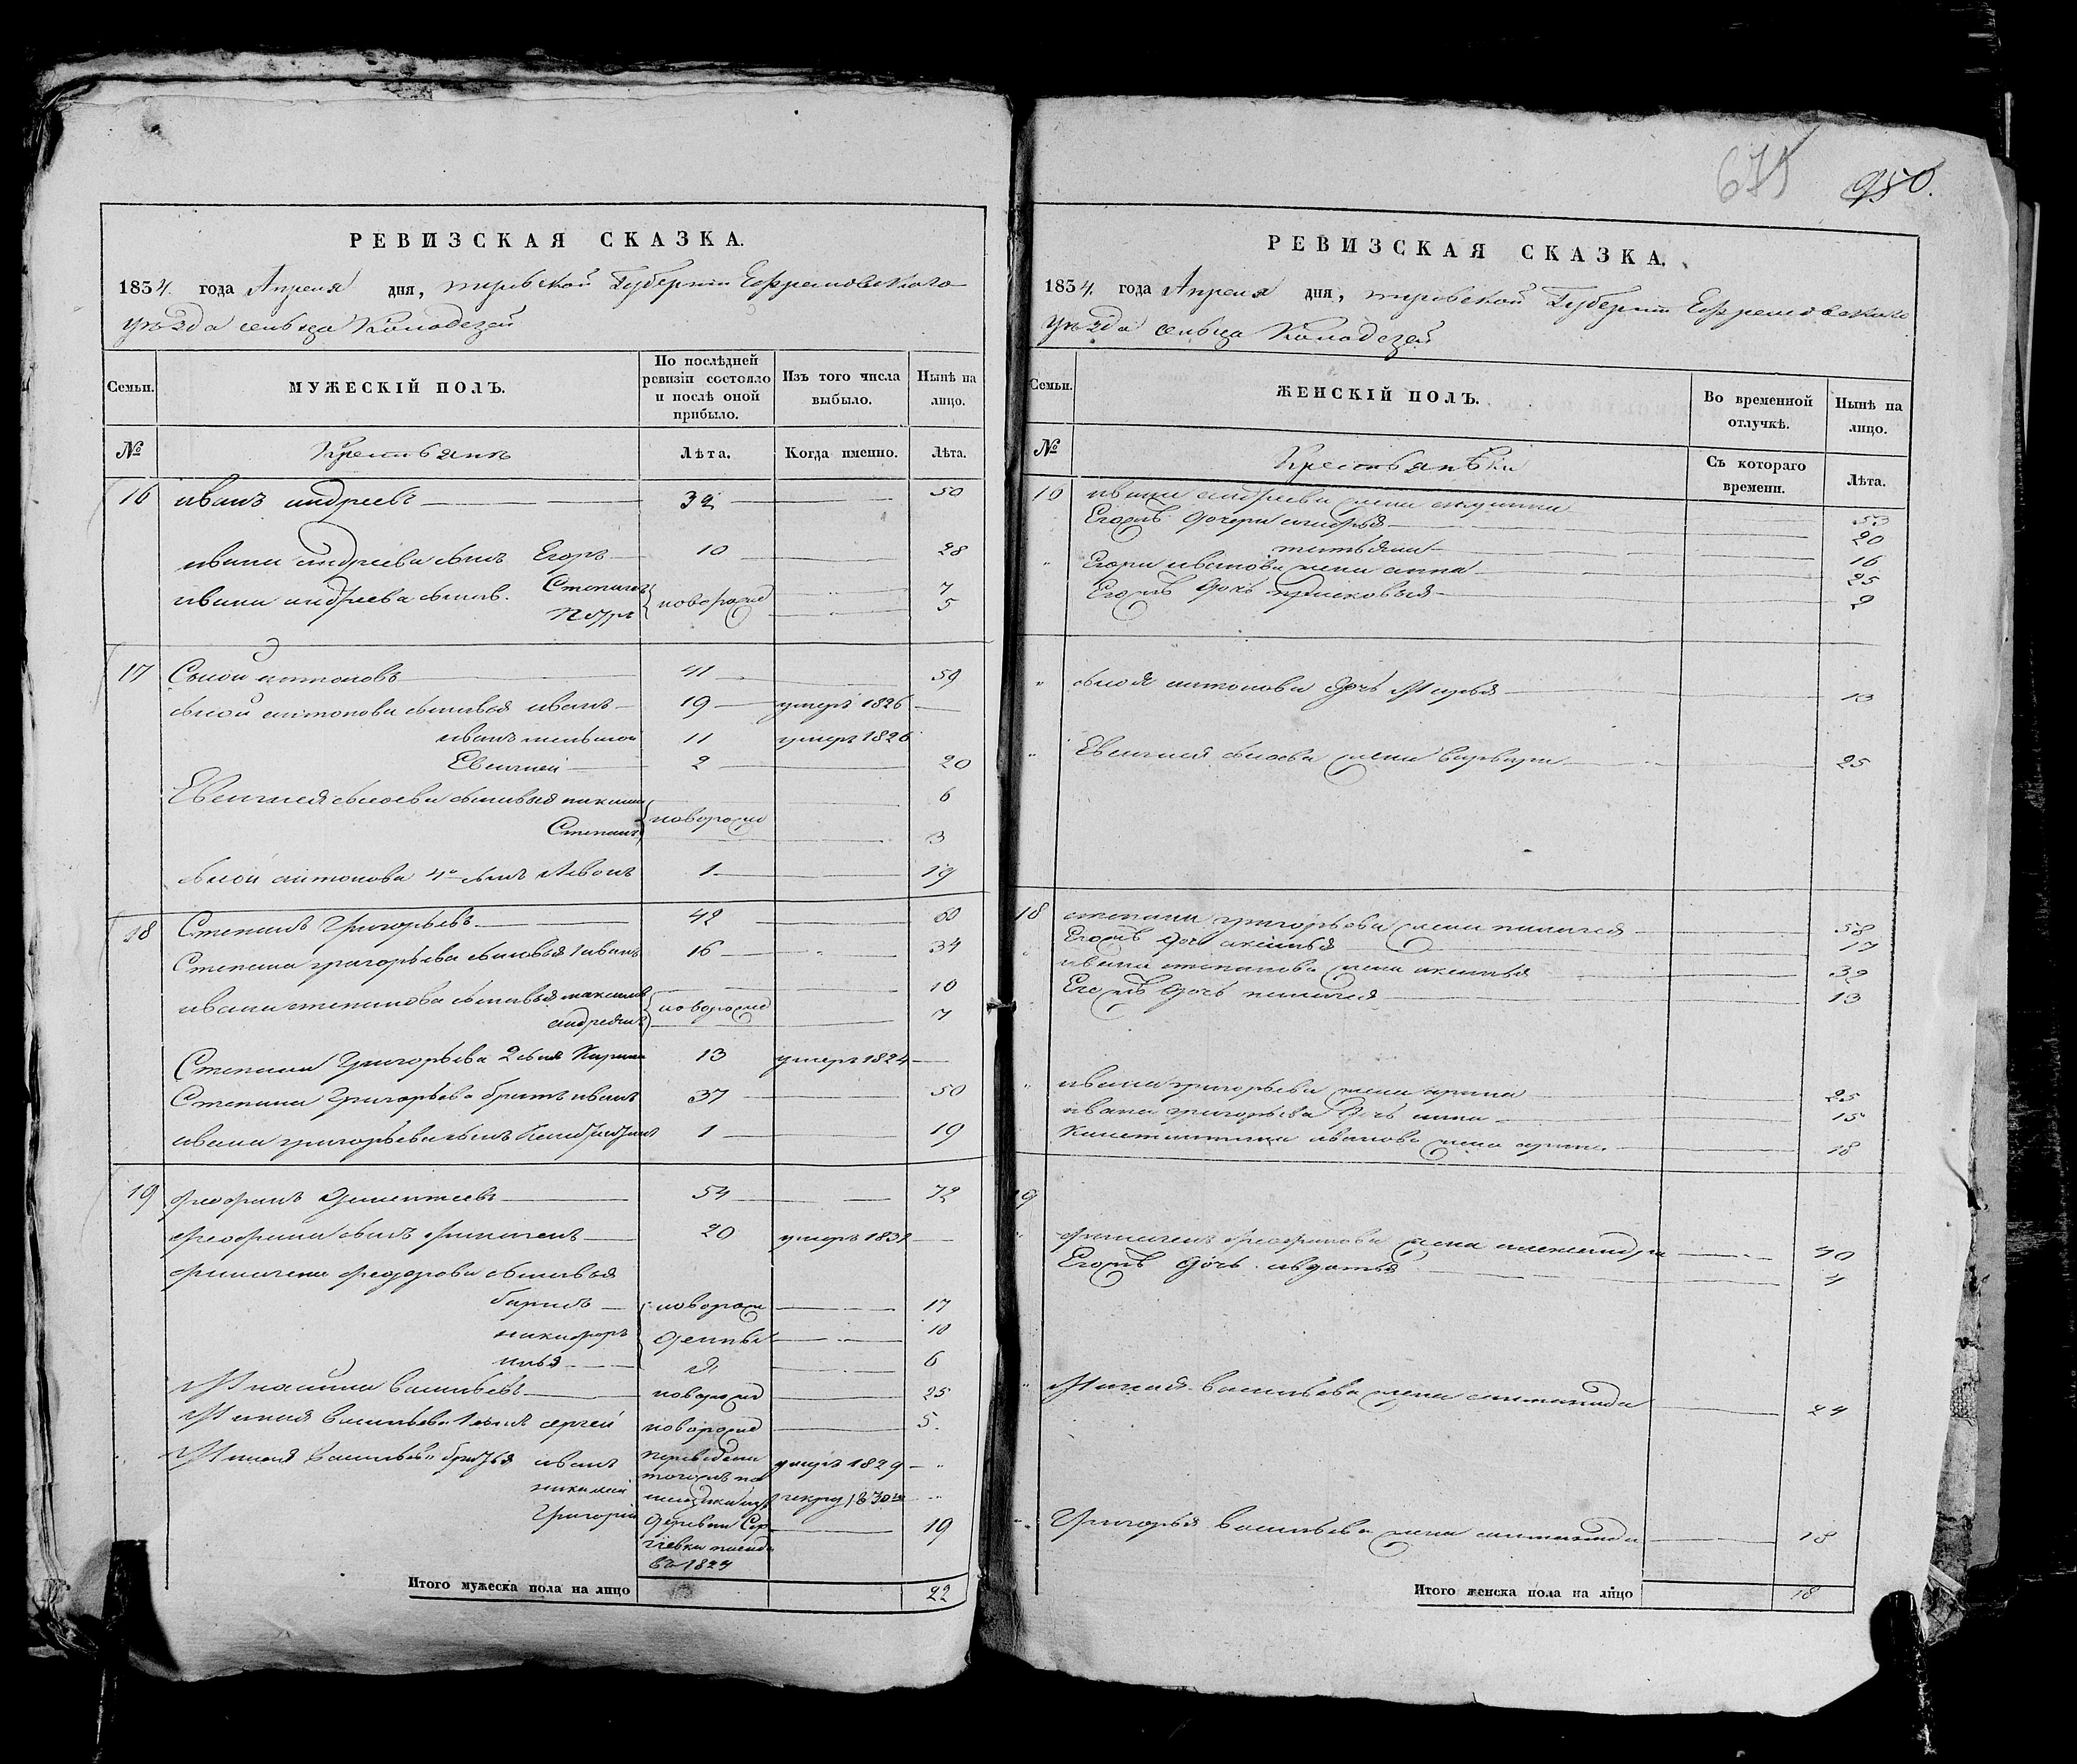 675 950.
РЕВИЗСКАЯ СКАЗКА.
1834. года Апреля дня, тульской Губернии Ефремовскаго
уезда сельца Колодезей
Семьи.
МУЖЕСКІЙ ПОЛЪ.
По послѣдней ревизіи состояло и послѣ оной прибыло.
Изъ того числа выбыло.
Нынѣ на лицо.
№ Крестьянъ Лѣта. Когда именно. Лѣта.
16 иванъ андреевъ 32 50
ивана андреева сынъ Егоръ 10 28
ивана андреева сынов. Степанъ новорожд 7
Петръ 5
17 Сысой антоновъ 41 59
сысоя антонова сыновья иванъ 19 умеръ 1826
иванъ меньшой 11 умеръ 1826
Евсигней 2 20
Евсигнея сысоева сыновья максимъ новорожд 6
Степанъ 3
сысоя антонова 4й сынъ Левонъ 1 19
18 Степанъ Григорьевъ 42 60
Степана григорьева сыновья 1 иванъ 16 34
ивана степанова сыновья максимъ новорожд 10
андреянъ 7
Степана Григорьева 2 сынъ Кирила 13 умеръ 1824
Степана Григорьева братъ иванъ 37 50
ивана григорьева сынъ 1 19
19 феофанъ Дементеевъ 54 72
феофана сынъ филипъ 20 умеръ 1831
сыновья
борисъ новорож 17
никифоръ денныя 10
илья 6
васильевъ новорожд 25
васильева 1 сынъ сергей новорожд 5.
васильева братья иванъ переведены умеръ 1829
николай 1830
Григорій деревни 19
въ 1824
Итого мужеска пола на лицо 22
РЕВИЗСКАЯ СКАЗКА.
1834. года Апреля дня, тульской Губернии Ефремовскаго
уезда сельца Колодезей
Семьи.
ЖЕНСКІЙ ПОЛЪ.
Во временной отлучкѣ.
Нынѣ на лицо.
№ Крестьянъки Съ котораго времени. Лѣта.
16 ивана андреева жена акулина 53
Егожъ дочери марфа 20
татьяна 16
Егора иванова жена анна 25
Егожъ дочь прасковья 2
сысоя антонова дочь Марья 13
Евсигнея сысоева жена варвара 25
18 степана григорьева жена пелагея 58
Егожъ дочь аксинья 17
ивана степанова жена аксинья 32
Егожъ дочь пелагея 13
ивана григорьева жена арина 25
ивана григорьева дочь анна 15
Константина иванова жена 18
19
филипа феофанова жена александра 40
Егожъ дочь авдотья 4
васильева жена 24
Григорья васильева жена 18
Итого женска пола на лицо 18